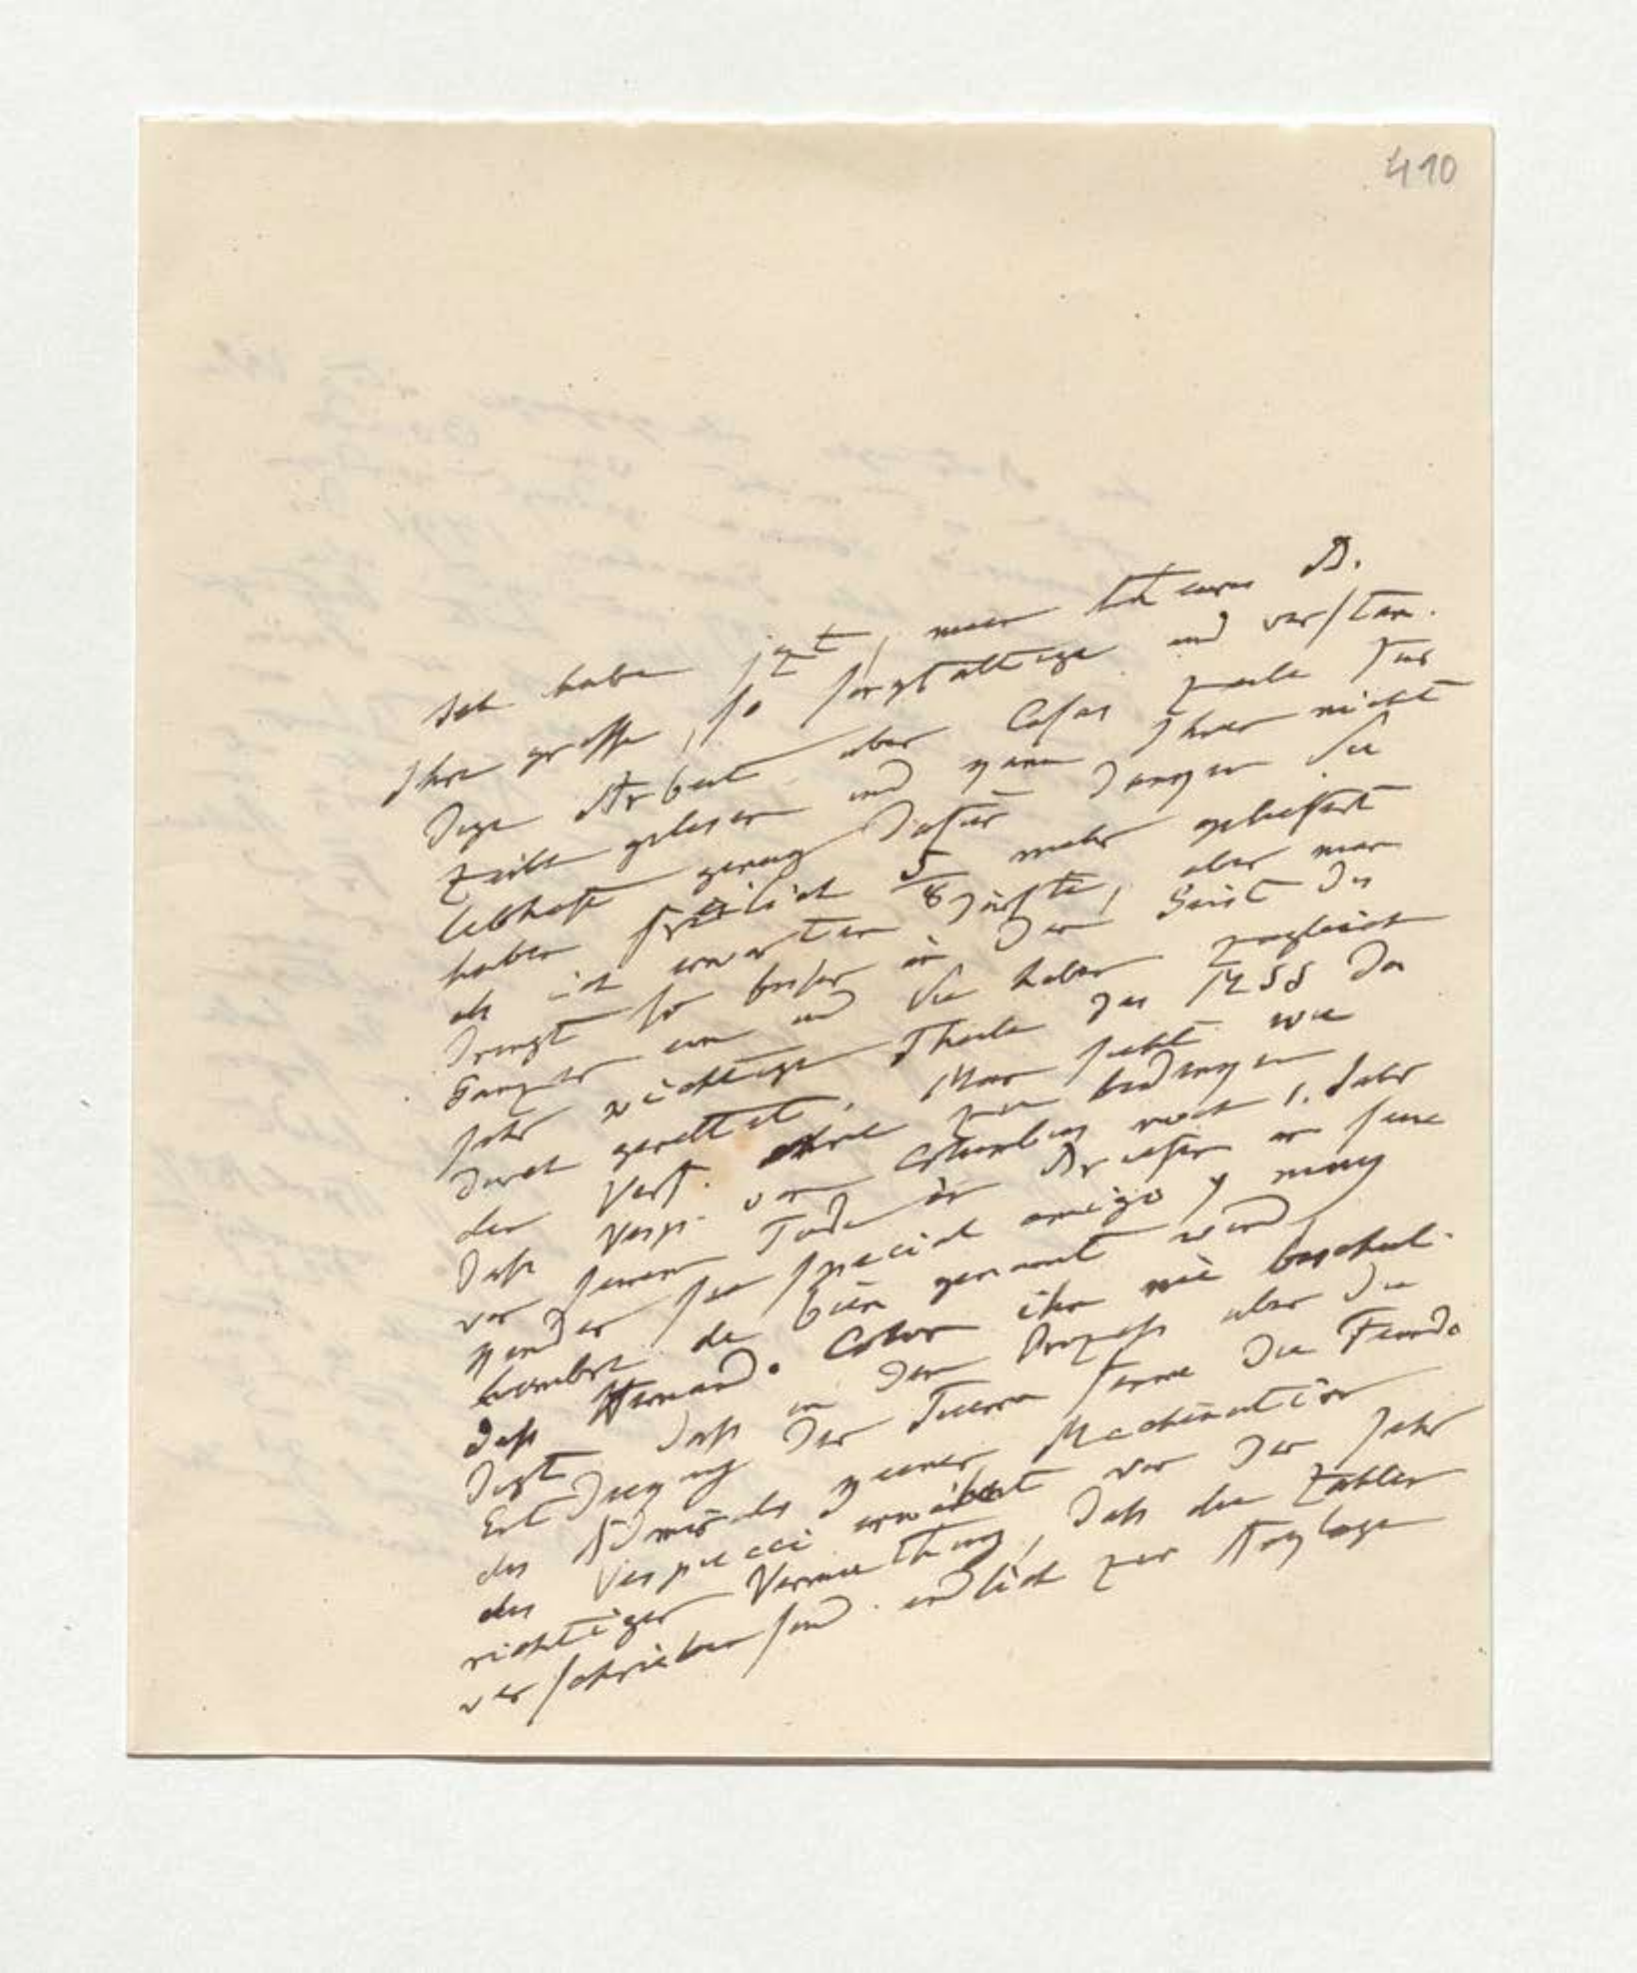 410
Ich habe jetzt, mein theurer B.
Ihre grosse, so sorgfältige und verstän-
dige Arbeit über Casas Zeile für
Zeile gelesen und kann Ihnen nicht
lebhaft genug dafür danken Sie
haben freilich 5/8 mehr geliefert
als ich erwarten dürfte, aber man
dringt so besser in den Geist des
Ganzen ein und Sie haben zugleich
sehr wichtige Theile des MSS da
durch gerettet. Man sieht wie
der Verf. ohne zu bedingen
dass Vesp. von Columbus noch 1. Jahr
vor seinem Tode in Briefen an seine
Kinder sein special amigo y muy
hombre de bien genannt wird
dass Hernand. Colon ihn nie beschul-
digt dass in dem Prozess über die
Entdeckung der Tierra ferme die Feinde
des Admirals keiner Machination
des Vespucci erwähnt von der sehr
richtigen Vermuthung, dass die Zahlen
verschrieben sind endlich zur Anklage